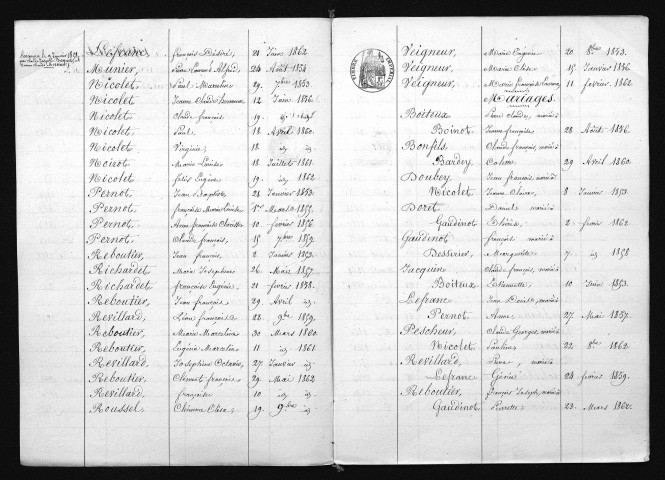 Lefranc, françois Désiré, 21 Juin 1862
Munier, 24 Août 1854
Nicolet, Paul Marcelin 29 7bre 1853.
Nicolet, Jeanne Claude 12 Juin 1856.
Nicolet Claude françois 19
Nicolet, Paul, 18 Avril 1860.
Nicolet Virginie, 18 id id
Noirot Marie Louise 18 Juillet 1861.
Nicolet félix Eugène 19 id 1862
Pernot Jean Baptiste 28 Janvier 1853.
Pernot, françoise Marie 1er Mars 1855.
Pernot, Anne françoise 10 février 1856
Pernot Claude françois, 15 7bre 1859.
Reboutier, Jean françois, 2 Janvier 1853.
Richardet Marie Joséphine 26 Mai 1857.
Richardet françois Eugène, 21 février 1858.
Reboutier, Jean françois 29 Avril id
Revillard, françois 22 9bre 1859.
Reboutier, Marie Marceline 30 Mars 1860.
Reboutier, Eugénie Marceline 11 id 1861
Revillard, Joséphine 27 Janvier id
Reboutier, Clément françois 29 Mai 1862
Revillard, françoise 10 id id
Roussel, Elisa, 19 9bre id
Veigneur, Marie Eugénie 20 8bre 1853.
Veigneur, Marie Elise 15 Janvier 1856
Veigneur, Marie françoise 11 février 1862
Mariages.
Boiteux Pierre Claude, marié à
Boinot Jeanne françoise 28 Août 1856.
Bonfils, Claude françois, marié à
Bardey 29 Avril 1860.
Doubey Jean françois marié à
Nicolet, Jeanne Claire, 8 Janvier 1853.
Doret Daniel marié à
Gaudinot 2 février 1862.
Gaudinot françois marié à
Desserier, Marguerite 7 id 1858
Jacquin Claude françois, marié à
Boiteux 10 Juin 1853.
Lefranc marié à
Pernot Anne 27 Mai 1857.
Pescheur, Claude Georges, marié à
Nicolet Pauline 22 8bre 1862.
Revillard, Pierre, marié à
Lefranc 24 février 1859.
Reboutier, françois Joseph, marié à
Gaudinot Pierrette 23 Mars 1862.